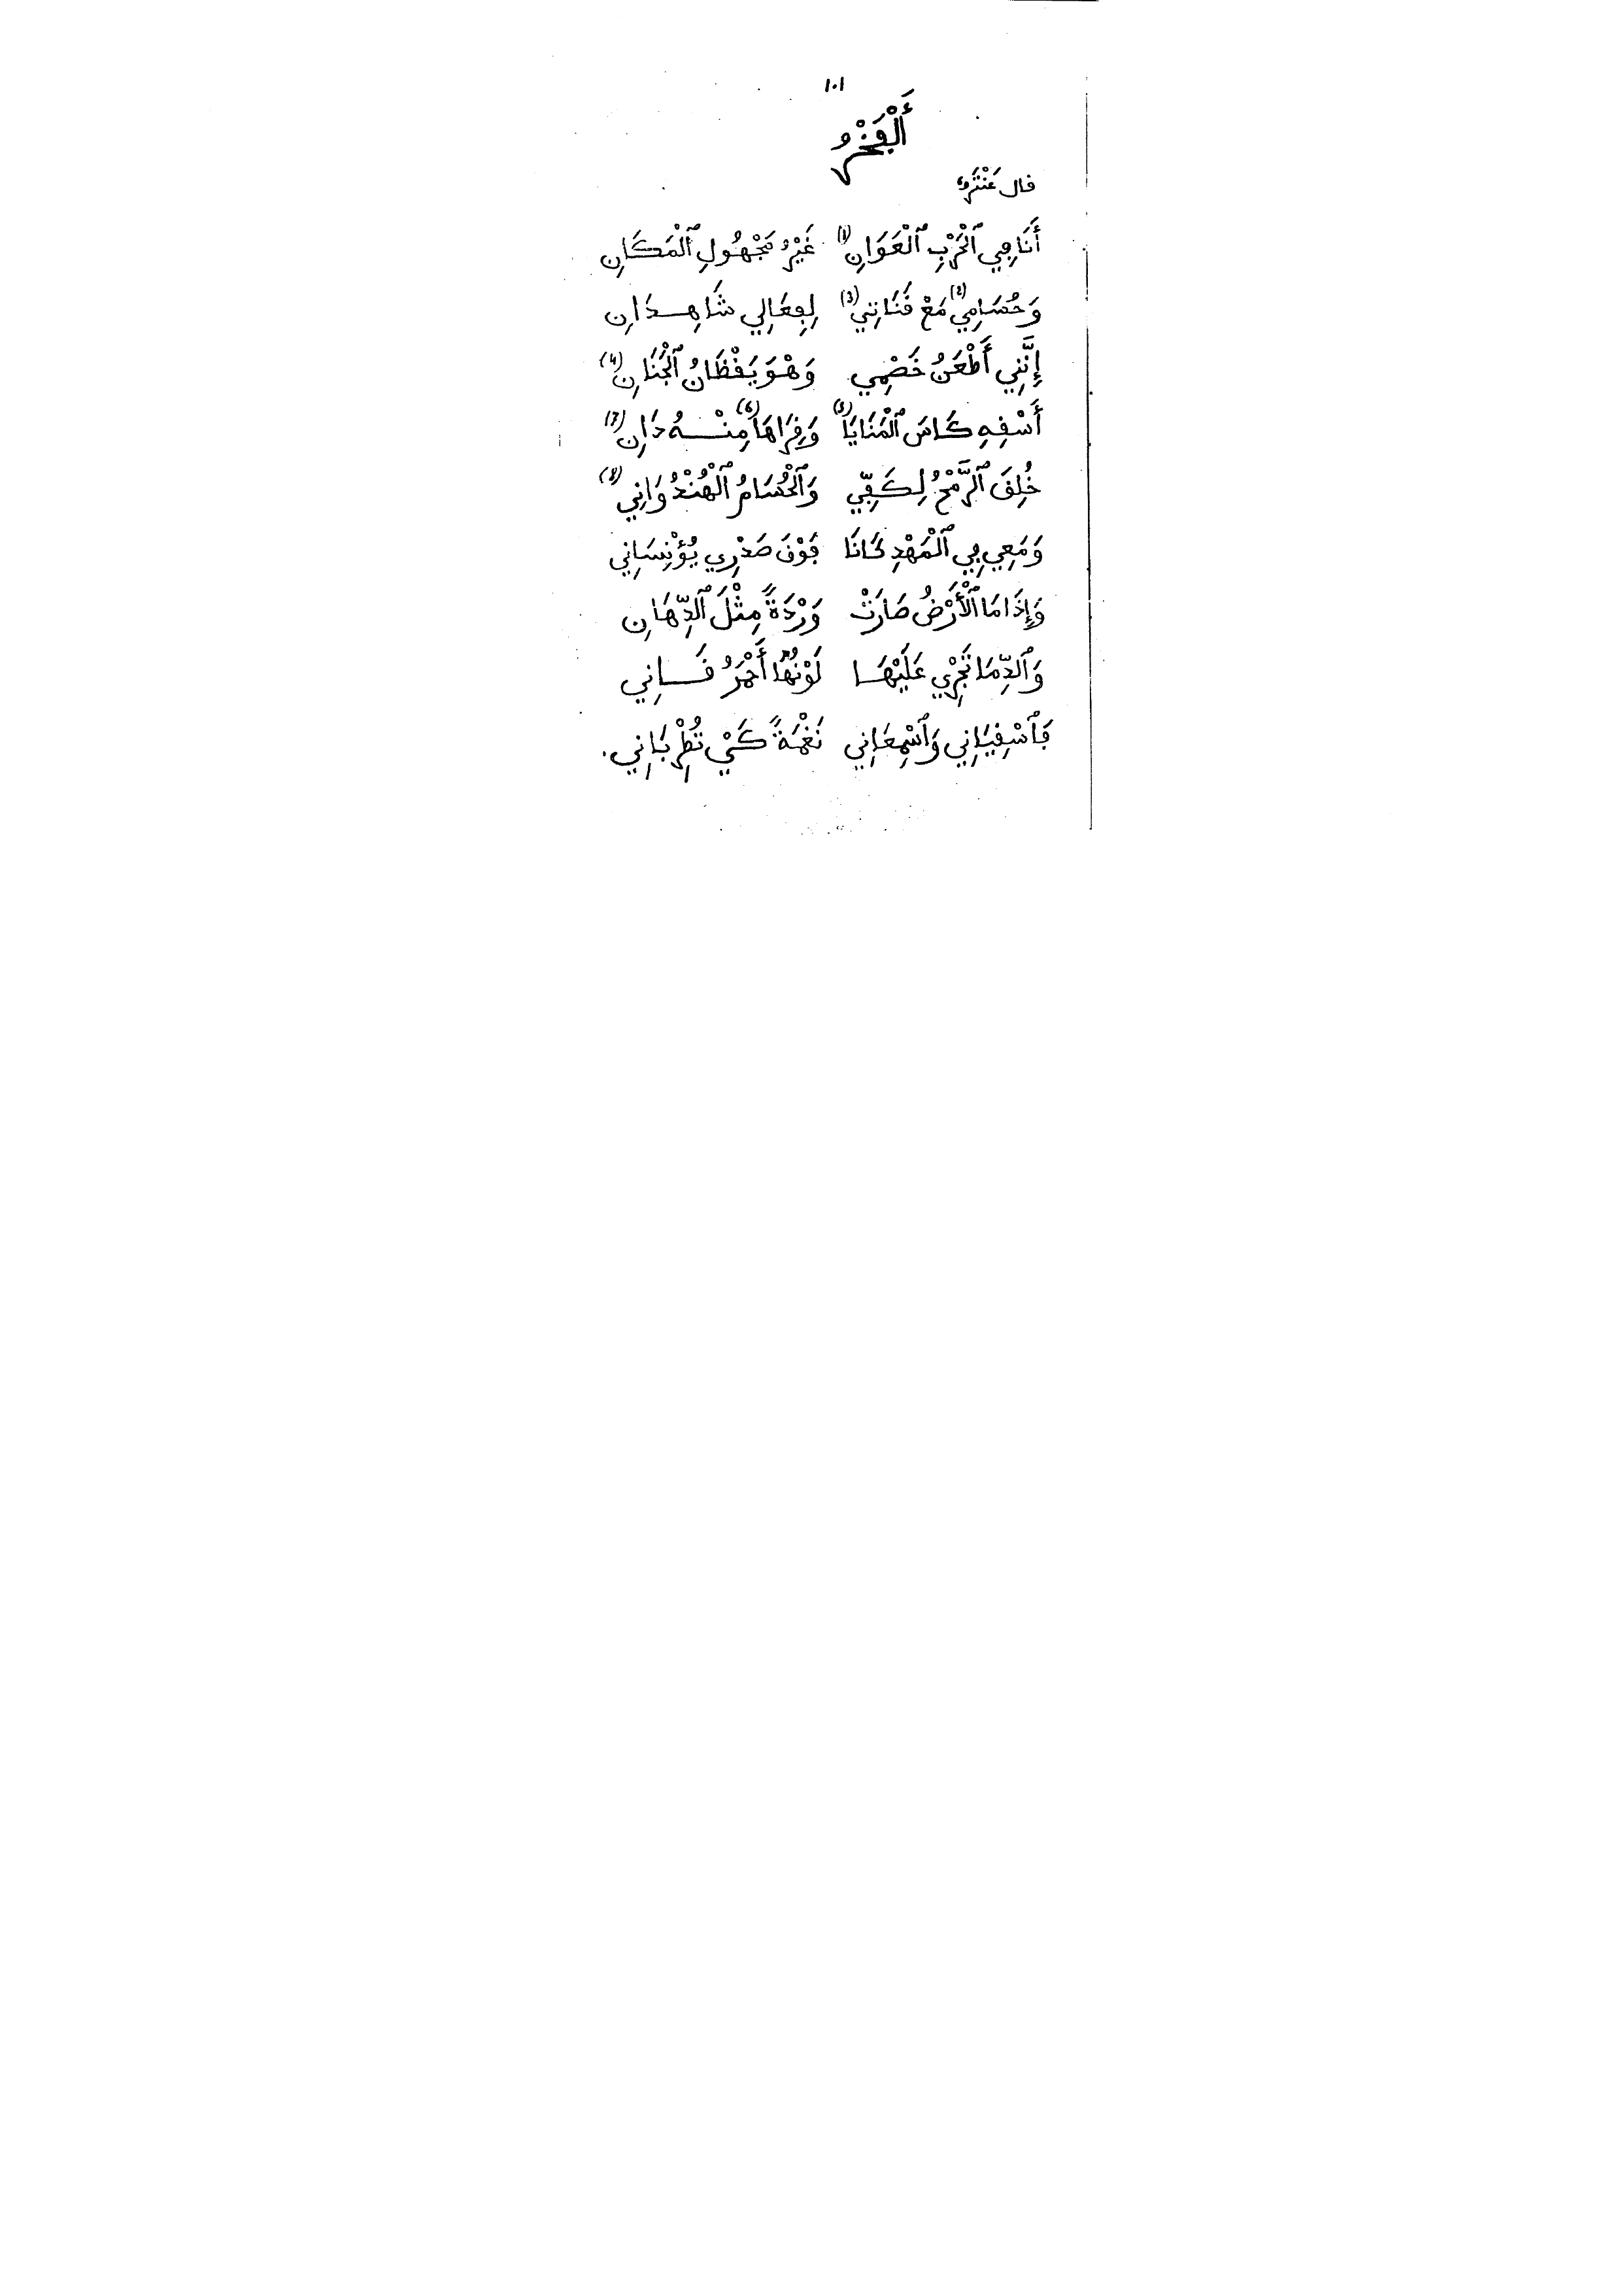 ١٠١
أَلْفَخْرُ
قال عَنْتَرَةُ
أَنَا فِي ٱلْحَرْبِ ٱلْعَوَانِ (1) غَيْرُ مَجْهُولِ ٱلْمَكَانِ
وَحُسَامِي (2) مَعْ قَنَاتِي (3) لِفِعَالِي شَاهِدَانِ
إِنَّنِي أَطْعَنُ خَصْمِي وَهْوَ يَقْظَانُ ٱلْجَنَانِ (4)
أَسْقِهِ كَاسَ ٱلْمَنَايَا (5) وَقِرَاهَا (6) مِنْهُ دَانِ (7)
خُلِقَ ٱلرُّمْحُ لِكَفِّي وَٱلْحُسَامُ ٱلْهُنْدُوَانِي (8)
وَمَعِي فِي ٱلْمَهْدِ كَانَا فَوْقَ صَدْرِي يُؤْنِسَانِي
وَإِذَا مَا ٱلْأَرْضُ صَارَتْ وَرْدَةً مِثْلَ ٱلدِّهَانِ
وَٱلدِّمَا تَجْرِي عَلَيْهَا لَوْنُهَا أَحْمَرُ قَانِي
فَٱسْقِيَانِي وَٱسْمِعَانِي نَغْمَةً كَيْ تُطْرِبَانِي.